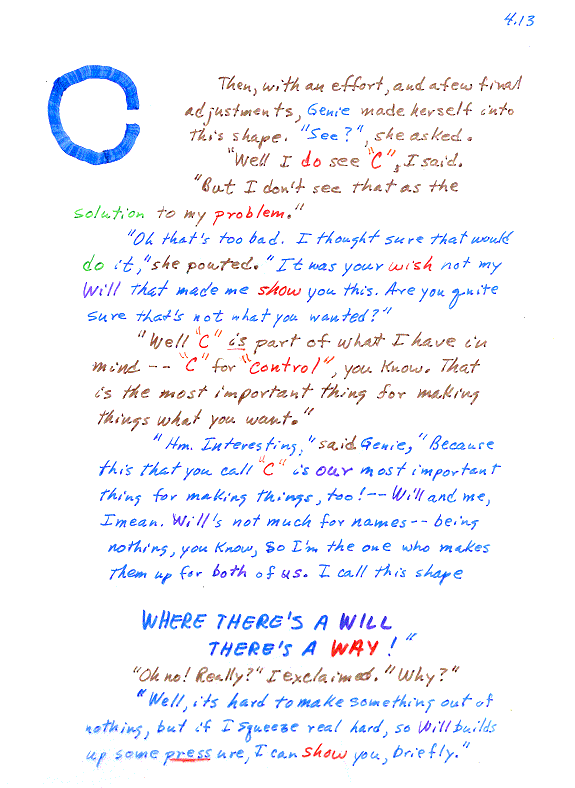 4.13
Then, with an effort, and a few final
adjustments, Genie made herself into
this shape. "See?", she asked.
"Well I do see "C", I said.
"But I don't see that as the
solution to my problem."
"Oh that's too bad. I thought sure that would
do it," she pouted. "It was your wish not my
Will that made me show you this. Are you quite
sure that's not what you wanted?"
"Well "C" is part of what I have in
mind -- "C" for "control", you know. That
is the most important thing for making
things what you want."
"Hm. Interesting," said Genie, "Because
this that you call "C" is our most important
thing for making things, too! -- Will and me,
I mean. Will's not much for names -- being
nothing, you know, so I'm the one who makes
them up for both of us. I call this shape
WHERE THERE'S A WILL
THERE'S A WAY!"
"Oh no! Really?" I exclaimed. "Why?"
"Well, its hard to make something out of
nothing, but if I squeeze real hard, so Will builds
up some press ure, I can show you, briefly."